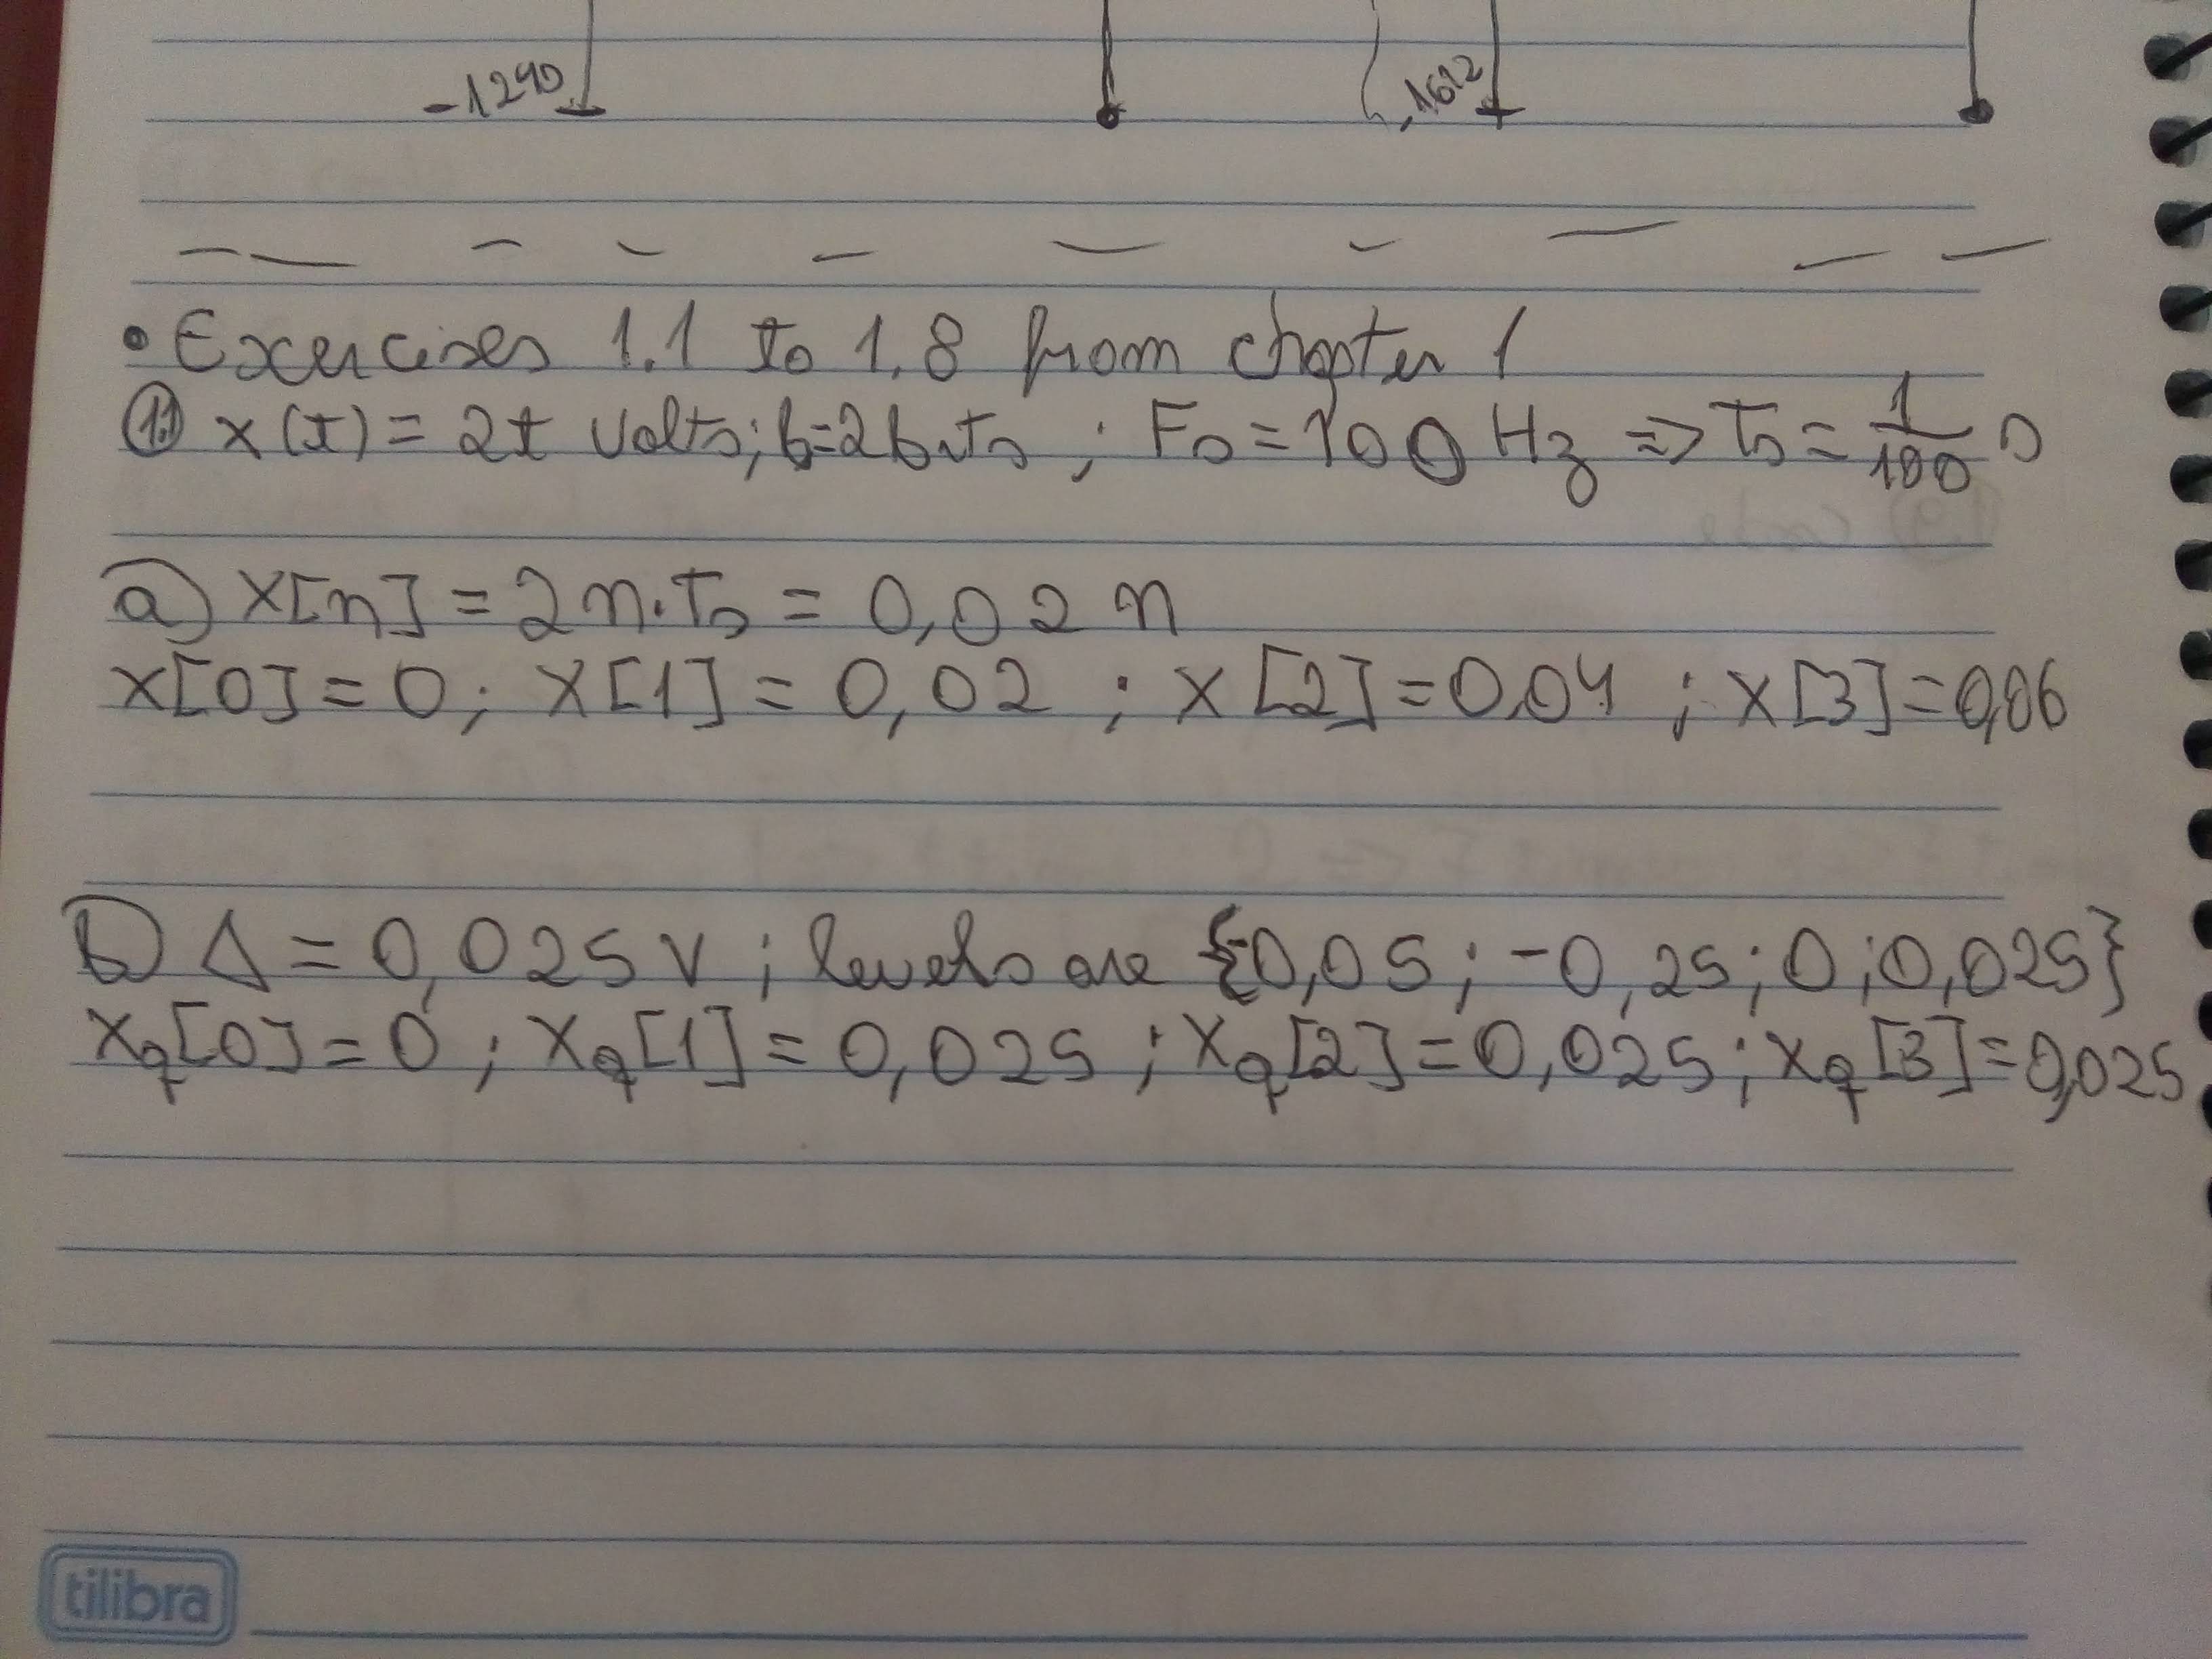 -1290
-1612
• Exercises 1.1 to 1.8 from chapter 1
1.1) x(t) = 2t volts; b=2bits ; Fs = 100 Hz => Ts = 1/100 s
a) x[n] = 2n.Ts = 0,02 n
x[0] = 0; x[1] = 0,02 ; x[2] = 0,04 ; x[3] = 0,06
b) Δ = 0,025 V ; levels are {-0,05; -0,25; 0; 0,025}
xq[0] = 0 ; xq[1] = 0,025 ; xq[2] = 0,025 ; xq[3] = 0,025
tilibra